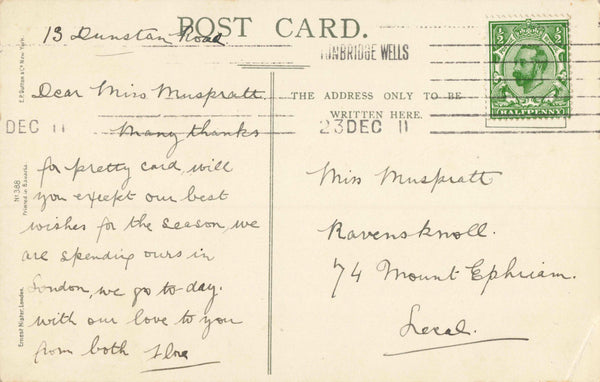 POST CARD.
13 Dunstan Road
TUNBRIDGE WELLS
Dear Miss Muspratt
THE ADDRESS ONLY TO BE
WRITTEN HERE.
DEC 11
23 DEC 11
Many thanks
for pretty card, will
you except our best
wishes for the season, we
are spending ours in
London, we go to-day.
with our love to you
from both
Miss Muspratt
Ravensknoll.
74 Mount Ephriam.
Local.
½ ½
HALFPENNY
E.P. Dutton & Co. New York.
No 388
Printed in Bavaria.
Ernest Nister, London.